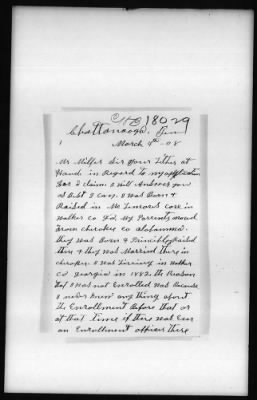 18029
Chattanooga, Tenn
March 4th - 08
Mr Miller Sir your Letter at
Hand in Regard to my application
For a claim. I will Answer you
as Best I can. I was Born &
Raised in Mc Lemore's cove in
walker co Ga. My Parrents moved
From cherokee co alabamma.
they was Born & Principly Raised
there & they was Married there in
cherokee. I was Liveing in walker
co georgia in 1882. the Reason
that I was not Enrolled was Because
I never knew any thing about
the Enrollment Before that or
at that time if there was Ever
an Enrollment officer there